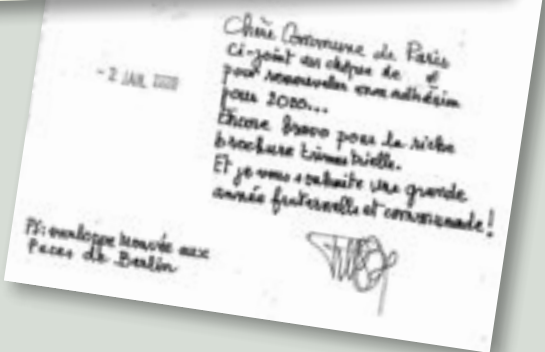 Chère Commune de Paris
ci-joint un chèque de €
pour renouveler mon adhésion
pour 2020...
Encore bravo pour la riche
brochure trimestrielle.
Et je vous souhaite une grande
année fraternelle et communarde !
- 2 JAN.
PS: enveloppe trouvée aux
Puces de Berlin